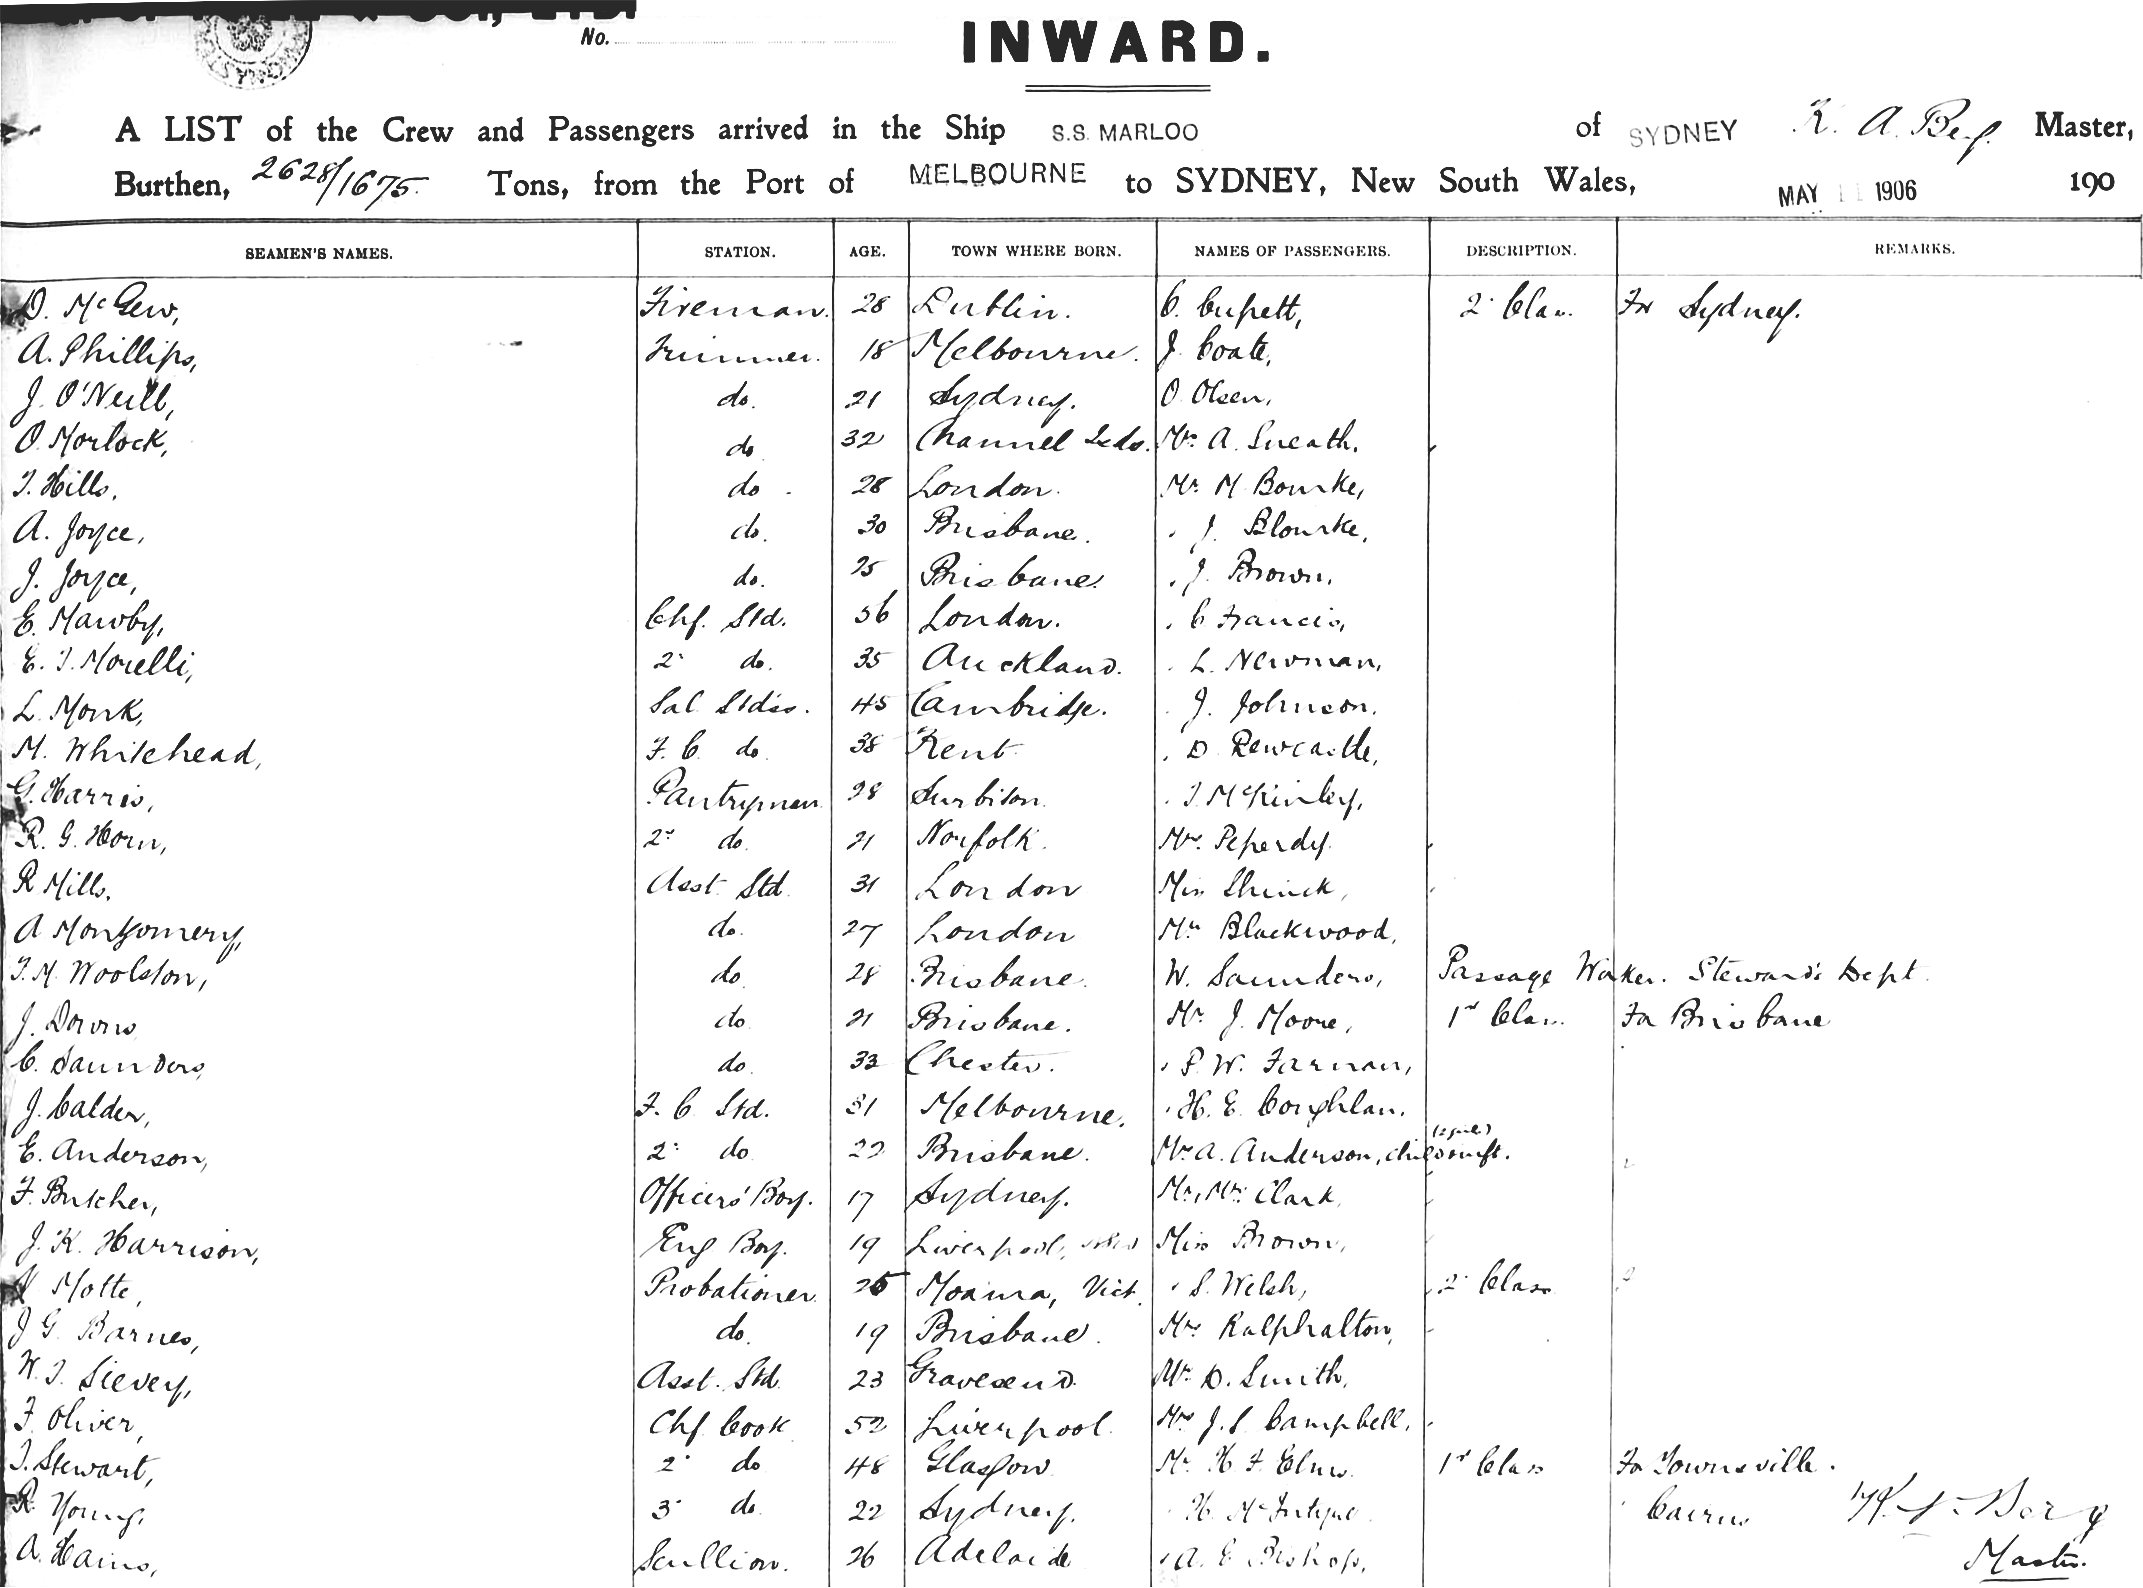 No.
INWARD.
A LIST of the Crew and Passengers arrived in the Ship S.S. MARLOO of SYDNEY K. A. Berg Master,
Burthen, 2628/1675. Tons, from the Port of MELBOURNE to SYDNEY, New South Wales, MAY 11 1906 190
SEAMEN'S NAMES. STATION. AGE. TOWN WHERE BORN. NAMES OF PASSENGERS. DESCRIPTION. REMARKS.
D. McGew, Fireman. 28 Dublin. C. 2" Class. For Sydney.
A. Phillips, Trimmer. 18 Melbourne. J. Coate,
J. O'Neill, do. 21 Sydney. O. Olsen,
O. Morlock, do 32 Channel Islds. Mrs A. Sneath.
T. Hills, do 28 London. Mr. M Bourke,
A. Joyce, do. 30 Brisbane. " J. Blourke,
J. Joyce, do. 25 Brisbane. " J. Brown,
E. Mawby, Chf. Std. 56 London. " C Francis,
E. T. Morelli, 2" do. 35 Auckland. " L. Newman,
L. Monk, Sal Stdss. 45 Cambridge. " J. Johnson.
M. Whitehead, F. C. do 38 Kent " D. Rewcastle,
G. Harris, Pantryman 28 Surbiton. " T. McKinley,
R. G. Horn, 2nd do. 21 Norfolk. Mrs. Peperdy.
R Mills. Asst. Std. 31 London Miss Shinck,
A Montgomery, do. 27 London Mr Blackwood,
T. M. Woolston, do 28 Brisbane. W. Saunders, Passage Worker. Steward's Dept.
J. Downs do 21 Brisbane. Mr. J. Moore, 1st Class. For Brisbane
C. Saunders, do. 33 Chester. " P. W. Farnan,
J. Calder, F. C. Std. 31 Melbourne. " H. E. Coughlan.
E. Anderson, 2" do 22 Brisbane. Mrs A. Anderson, child & inft.
F. Butcher, Officers' Boy. 17 Sydney. Mr, Mrs Clark,
J. K. Harrison, Eng Boy. 19 Liverpool, Miss Brown,
Motte, Probationer. 25 Moama, Vict. " S. Welsh, 2" Class
J G. Barnes, do. 19 Brisbane. Mrs Ralphalton,
W. T. Sievey, Asst. Std. 23 Gravesend. Mr. D. Smith,
F. Oliver, Chf Cook 52 Liverpool. Mrs J. S. Campbell,
T. Stewart, 2" do 48 Glasgow Mr. H. F. Elms. 1st Class For Townsville.
R. Young, 3" do. 22 Sydney. " H. McIntyre " Cairns K. A. Berg
A. Hains, Scullion. 26 Adelaide " A. E. Bishop, Master.